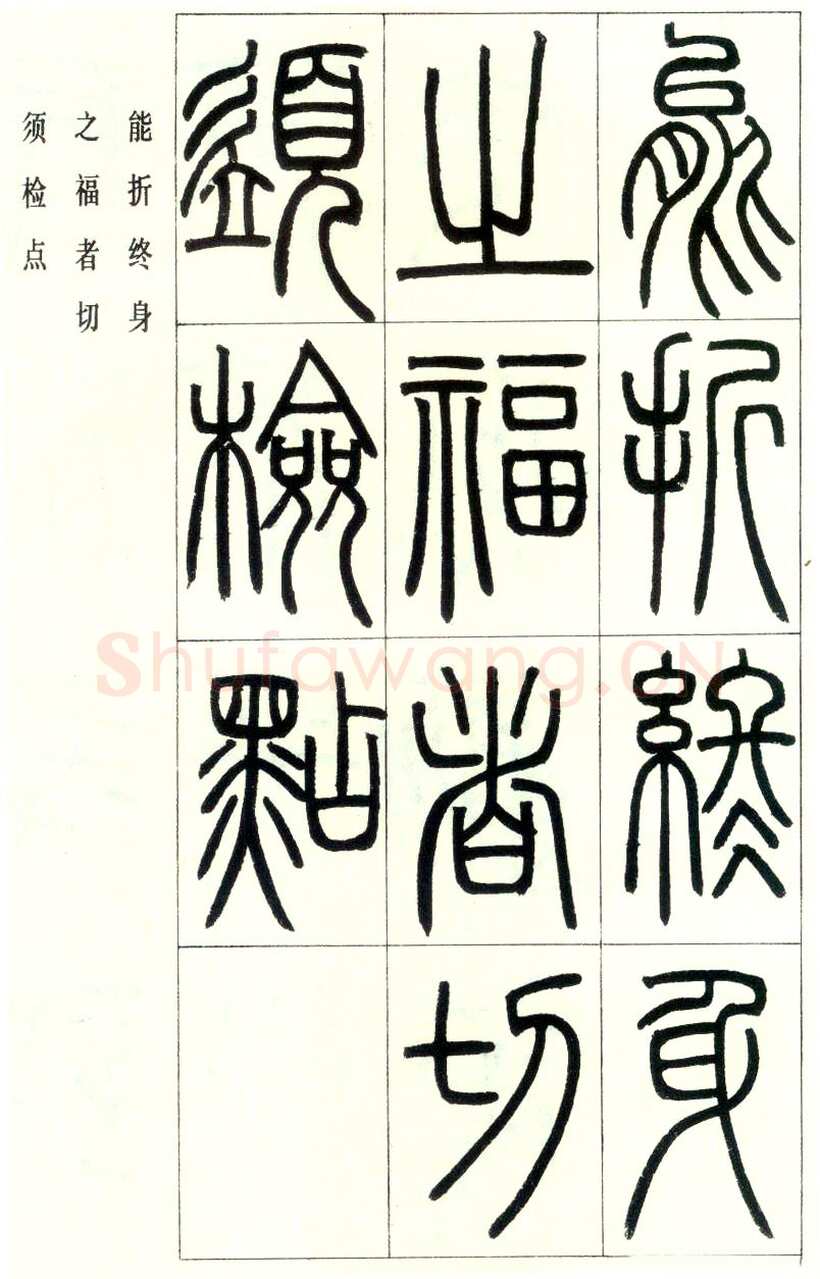 能折終身
之福者切
須檢點
能折终身
之福者切
须检点
Shufawang.CN